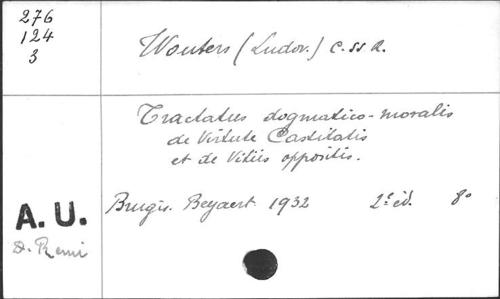 276
124
3
Wouters (Ludov.) C. ss R.
Tractatus dogmatico-moralis
de Virtute Castitatis
et de Vitiis oppositis.
Brugis. Beyaert. 1932 2e éd. 8º
A. U.
D. Remi